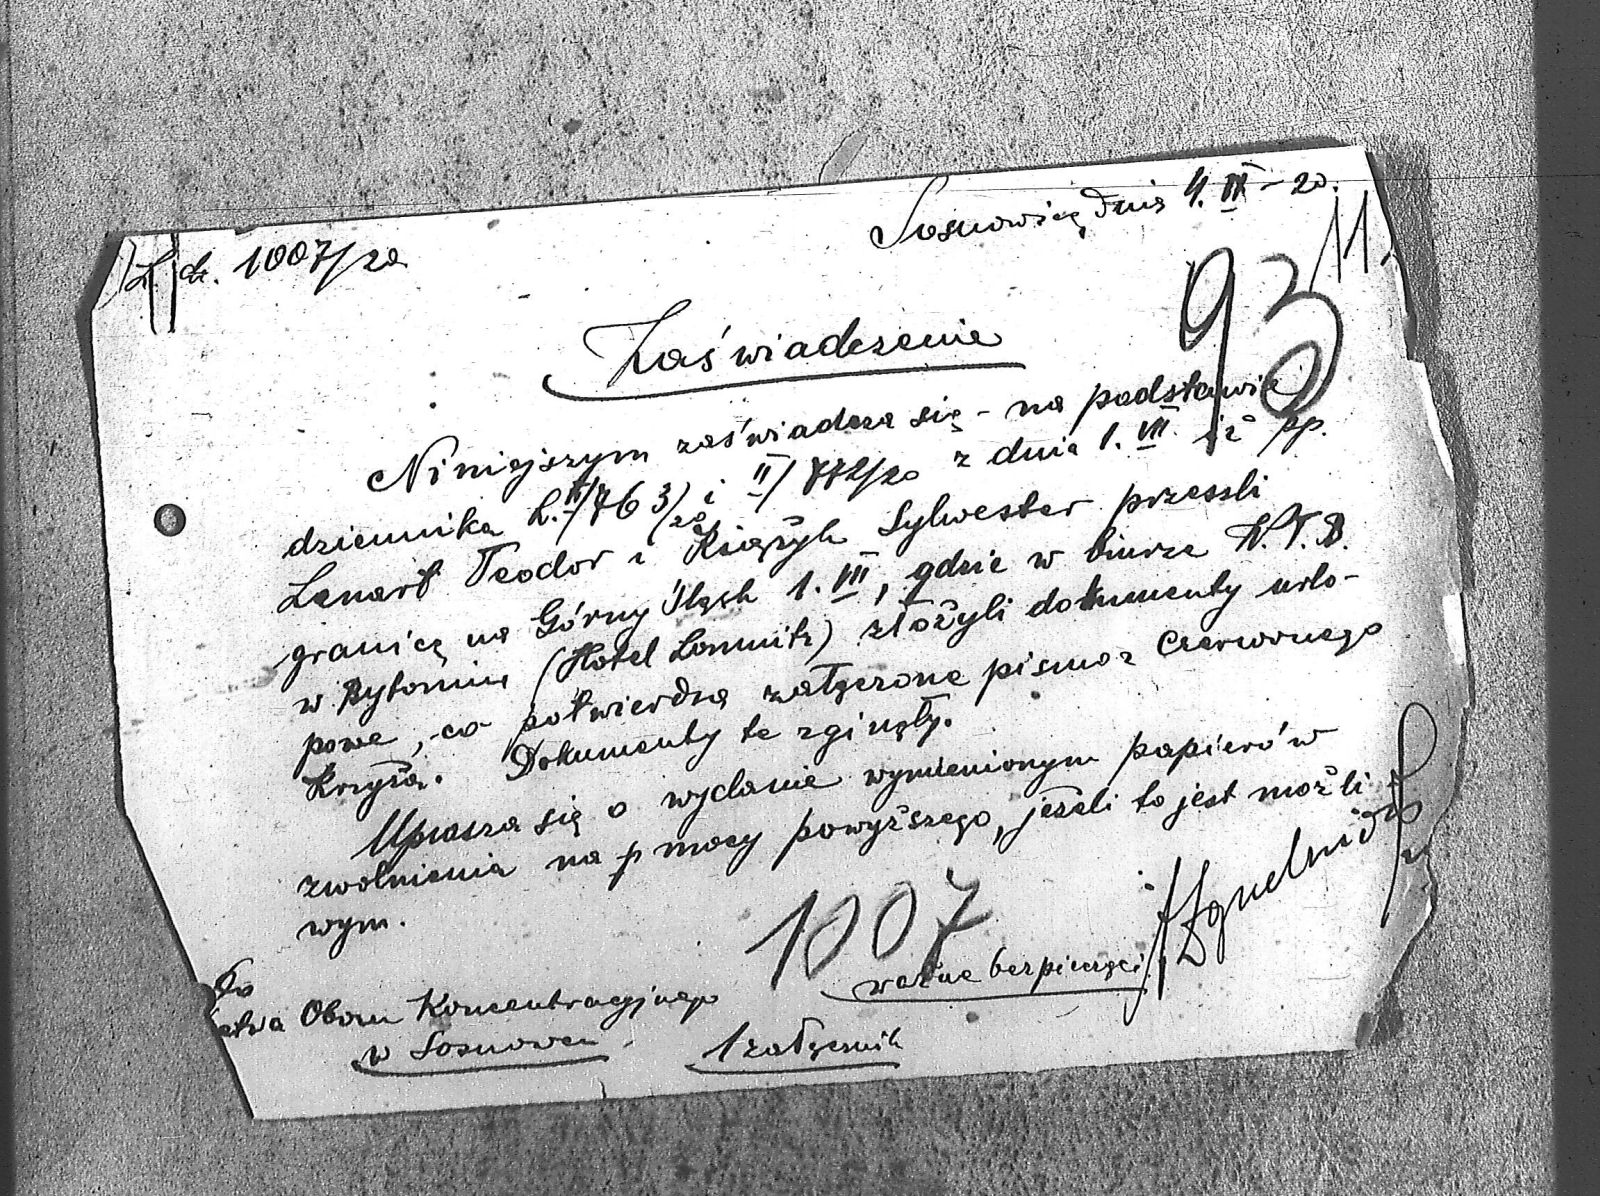 Sosnowiec, dnia 4. IX - 20.
L. dz. 1007/20
11.
93
Zaświadczenie
Niniejszym zaświadcza się - na podstawie
dziennika L. II/763/20 i II/772/20 z dnia 1. VII iż pp.
Lenart Teodor i Książyk Sylwester przeszli
granicę na Górny Śląsk 1. VII, gdzie w biurze W.T.B.
w Bytomiu (Hotel Lomnitz) złożyli dokumenty urlo-
powe, co potwierdza załączone pismo z Czerwonego
Krzyża. Dokumenty te zginęły.
Uprasza się o wydanie wymienionym papierów
zwolnienia na mocy powyższego, jeżeli to jest możli-
wym.
1007
Do
ctwa Obozu Koncentracyjnego
w Sosnowcu
ważne bez pieczęci
1 załącznik